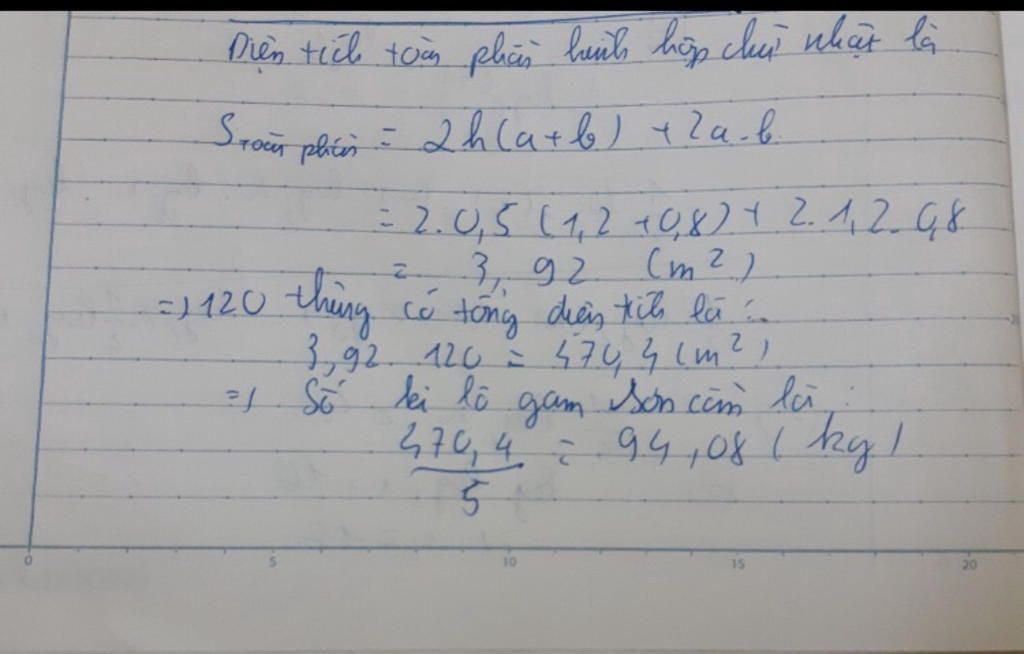 Diện tích toàn phần hình hộp chữ nhật là
Stoàn phần = 2h(a+b) + 2a.b
= 2.0,5 (1,2 +0,8) + 2.1,2.0,8
= 3,92 (m²)
=) 120 thùng có tổng diện tích là :
3,92 120 = 470,4 (m²)
=) Số ki lô gam sơn cần là :
470,4 / 5 = 94,08 (kg)
0 5 10 15 20